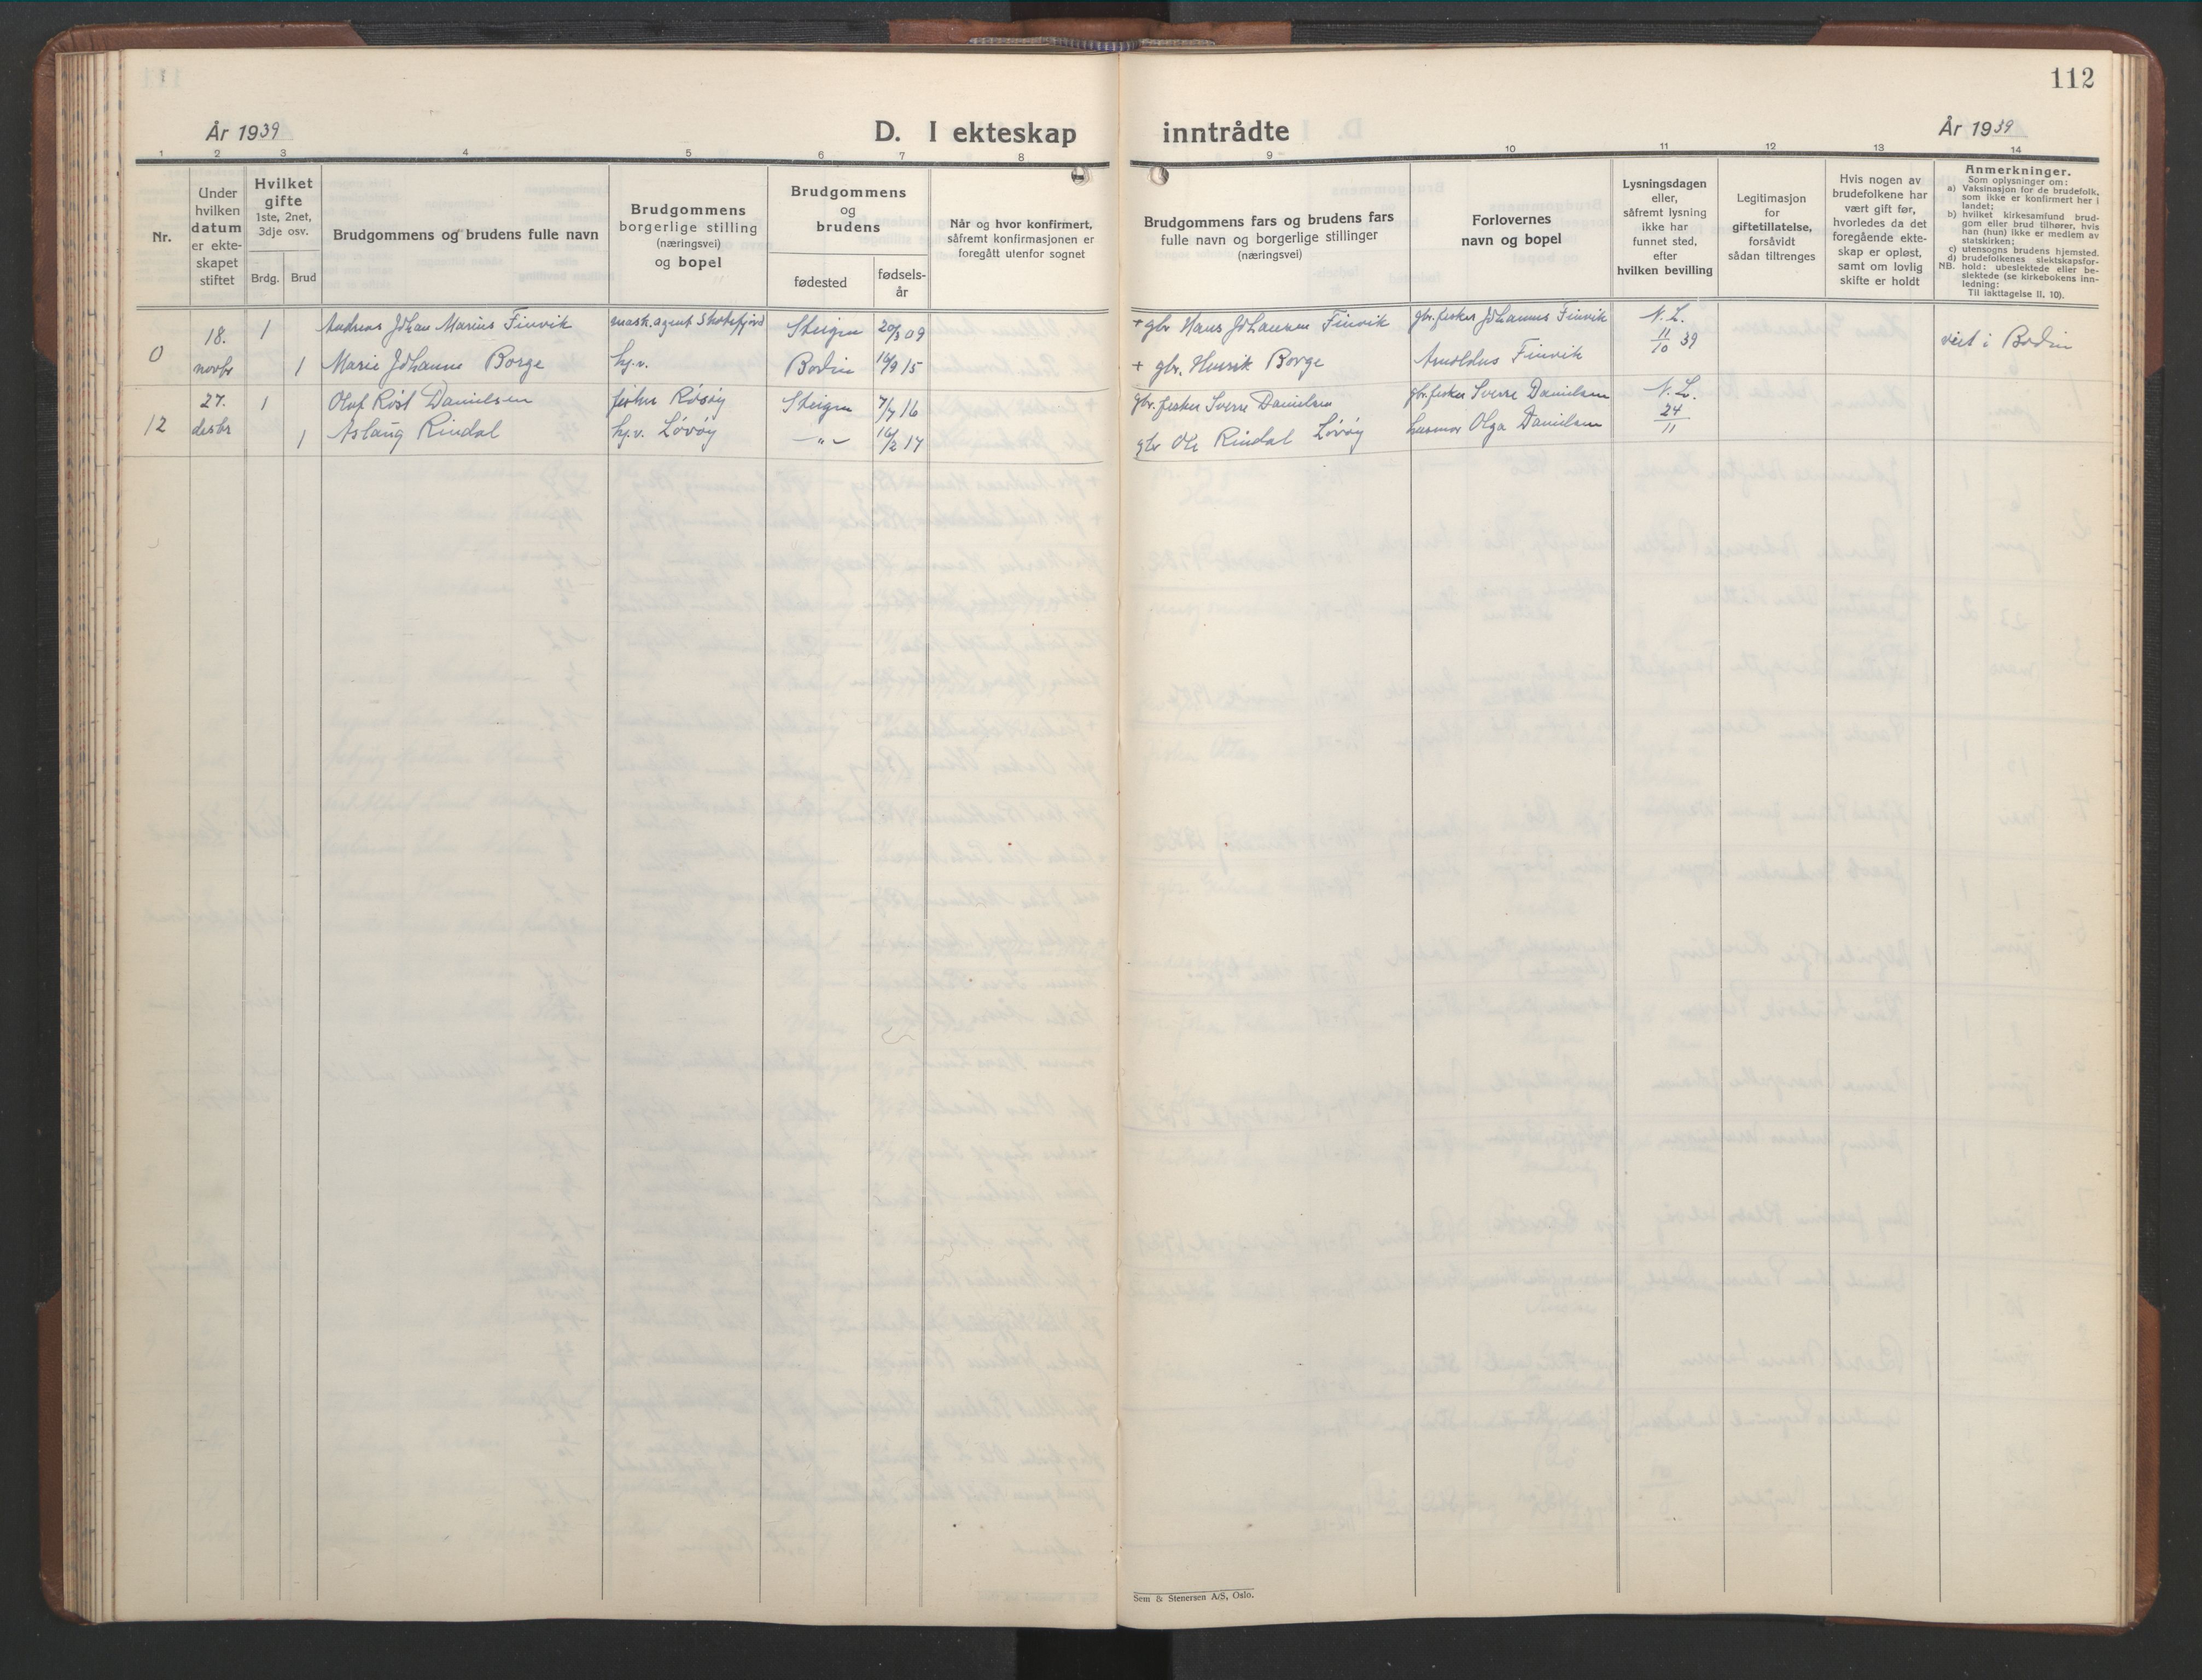 112
År 1939
D. I ekteskap inntrådte
År 1939
1 2 3 4 5 6 7 8 9 10 11 12 13 14
Nr.
Under
hvilken
datum
er ekte-
skapet
stiftet
Hvilket
gifte
1ste, 2net,
3dje osv.
Brdg. Brud
Brudgommens og brudens fulle navn
Brudgommens
borgerlige stilling
(næringsvei)
og bopel
Brudgommens
og
brudens
fødested
fødsels-
år
Når og hvor konfirmert,
såfremt konfirmasjonen er
foregått utenfor sognet
Brudgommens fars og brudens fars
fulle navn og borgerlige stillinger
(næringsvei)
Forlovernes
navn og bopel
Lysningsdagen
eller,
såfremt lysning
ikke har
funnet sted,
efter
hvilken bevilling
Legitimasjon
for
giftetillatelse,
forsåvidt
sådan tiltrenges
Hvis nogen av
brudefolkene har
vært gift før,
hvorledes da det
foregående ekte-
skap er opløst,
samt om lovlig
skifte er holdt
Anmerkninger.
Som oplysninger om:
a) Vaksinasjon for de brudefolk,
som ikke er konfirmert her i
landet;
b) hvilket kirkesamfund brud-
gom eller brud tilhører, hvis
han (hun) ikke er medlem av
statskirken;
c) utensogns brudens hjemsted.
d) brudefolkenes slektskapsfor-
NB. hold: ubeslektede eller be-
slektede (se kirkebokens inn-
ledning:
Til iakttagelse II. 10).
18. 1 Andreas Johan Marius Finvik mask.agent Skotsfjord Steigen 20/3 09 + gbr. Hans Johansen Finvik gbr. fisker Johannes Finvik N. L.
0 novbr 1 Marie Johanne Borge hj.v. Bodin 16/9 15 + gbr. Henrik Borge Arnoldus Finvik 11/10 39 viet i Bodin
27. 1 Olaf Röst Danielsen fisker Røsøy Steigen 7/7 16 gbr. fisker Sverre Danielsen gbr. fisker Sverre Danielsen N. L.
12 desbr 1 Aslaug Rindal hj.v. Løvøy —"— 16/2 17 gbr Ole Rindal Løvøy husmor Olga Danielsen 24/11
Sem & Stenersen A/S, Oslo.